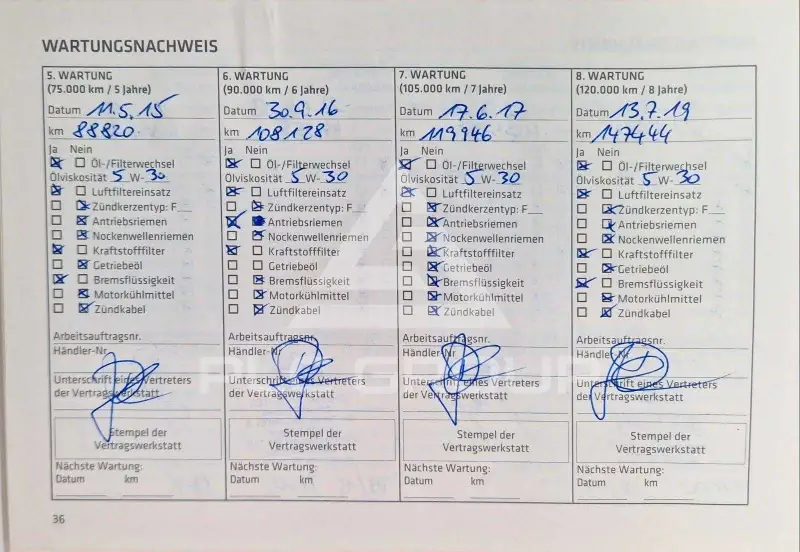 WARTUNGSNACHWEIS
5. WARTUNG
(75.000 km / 5 Jahre)
Datum 11.5.15
km 88820
Ja Nein
Öl-/Filterwechsel
Ölviskosität 5 W-30
Luftfiltereinsatz
Zündkerzentyp: F__
Antriebsriemen
Nockenwellenriemen
Kraftstofffilter
Getriebeöl
Bremsflüssigkeit
Motorkühlmittel
Zündkabel
Arbeitsauftragsnr.
Händler-Nr.
Unterschrift eines Vertreters
der Vertragswerkstatt
Stempel der
Vertragswerkstatt
Nächste Wartung:
Datum km
6. WARTUNG
(90.000 km / 6 Jahre)
Datum 30.9.16
km 108128
Ja Nein
Öl-/Filterwechsel
Ölviskosität 5 W-30
Luftfiltereinsatz
Zündkerzentyp: F__
Antriebsriemen
Nockenwellenriemen
Kraftstofffilter
Getriebeöl
Bremsflüssigkeit
Motorkühlmittel
Zündkabel
Arbeitsauftragsnr.
Händler-Nr.
Unterschrift eines Vertreters
der Vertragswerkstatt
Stempel der
Vertragswerkstatt
Nächste Wartung:
Datum km
7. WARTUNG
(105.000 km / 7 Jahre)
Datum 17.6.17
km 119946
Ja Nein
Öl-/Filterwechsel
Ölviskosität 5 W-30
Luftfiltereinsatz
Zündkerzentyp: F__
Antriebsriemen
Nockenwellenriemen
Kraftstofffilter
Getriebeöl
Bremsflüssigkeit
Motorkühlmittel
Zündkabel
Arbeitsauftragsnr.
Händler-Nr.
Unterschrift eines Vertreters
der Vertragswerkstatt
Stempel der
Vertragswerkstatt
Nächste Wartung:
Datum km
8. WARTUNG
(120.000 km / 8 Jahre)
Datum 13.7.19
km 147444
Ja Nein
Öl-/Filterwechsel
Ölviskosität 5 W-30
Luftfiltereinsatz
Zündkerzentyp: F__
Antriebsriemen
Nockenwellenriemen
Kraftstofffilter
Getriebeöl
Bremsflüssigkeit
Motorkühlmittel
Zündkabel
Arbeitsauftragsnr.
Händler-Nr.
Unterschrift eines Vertreters
der Vertragswerkstatt
Stempel der
Vertragswerkstatt
Nächste Wartung:
Datum km
36
GROUP